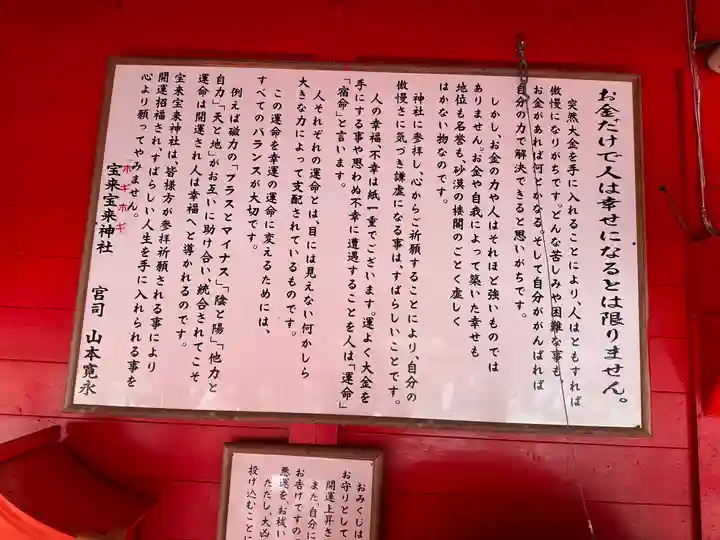 お金だけで人は幸せになるとは限りません。
突然大金を手に入れることにより、人はともすれば
傲慢になりがちです。どんな苦しみや困難な事も
お金があれば何とかなる。そして自分ががんばれば
自分の力で解決できると思いがちです。
しかし、お金の力や人はそれほど強いものでは
ありません。お金や自我によって築いた幸せも
地位も名誉も、砂漠の楼閣のごとく虚しく
はかない物なのです。
神社に参拝し、心からご祈願することにより、自分の
傲慢さに気づき謙虚になる事は、すばらしいことです。
人の幸福、不幸は紙一重でございます。運よく大金を
手にする事や思わぬ不幸に遭遇することを人は「運命」
「宿命」と言います。
人それぞれの運命とは、目には見えない何かしら
大きな力によって支配されているものです。
この運命を幸運の運命に変えるためには、
すべてのバランスが大切です。
例えば磁力の「プラスとマイナス」「陰と陽」「他力と
自力」「天と地」がお互いに助け合い、統合されてこそ
運命は開運され人は幸福へと導かれるのです。
宝来宝来神社は、皆様方が参拝祈願される事により
開運招福され、すばらしい人生を手に入れられる事を
心より願ってやみません。
ホギホギ
宝来宝来神社 宮司 山本寛永
おみくじは
お守りとして
開運上昇さ
また、自分に
お告げですの
悪運を、お祓い
ただし、大凶
投げ込むことに